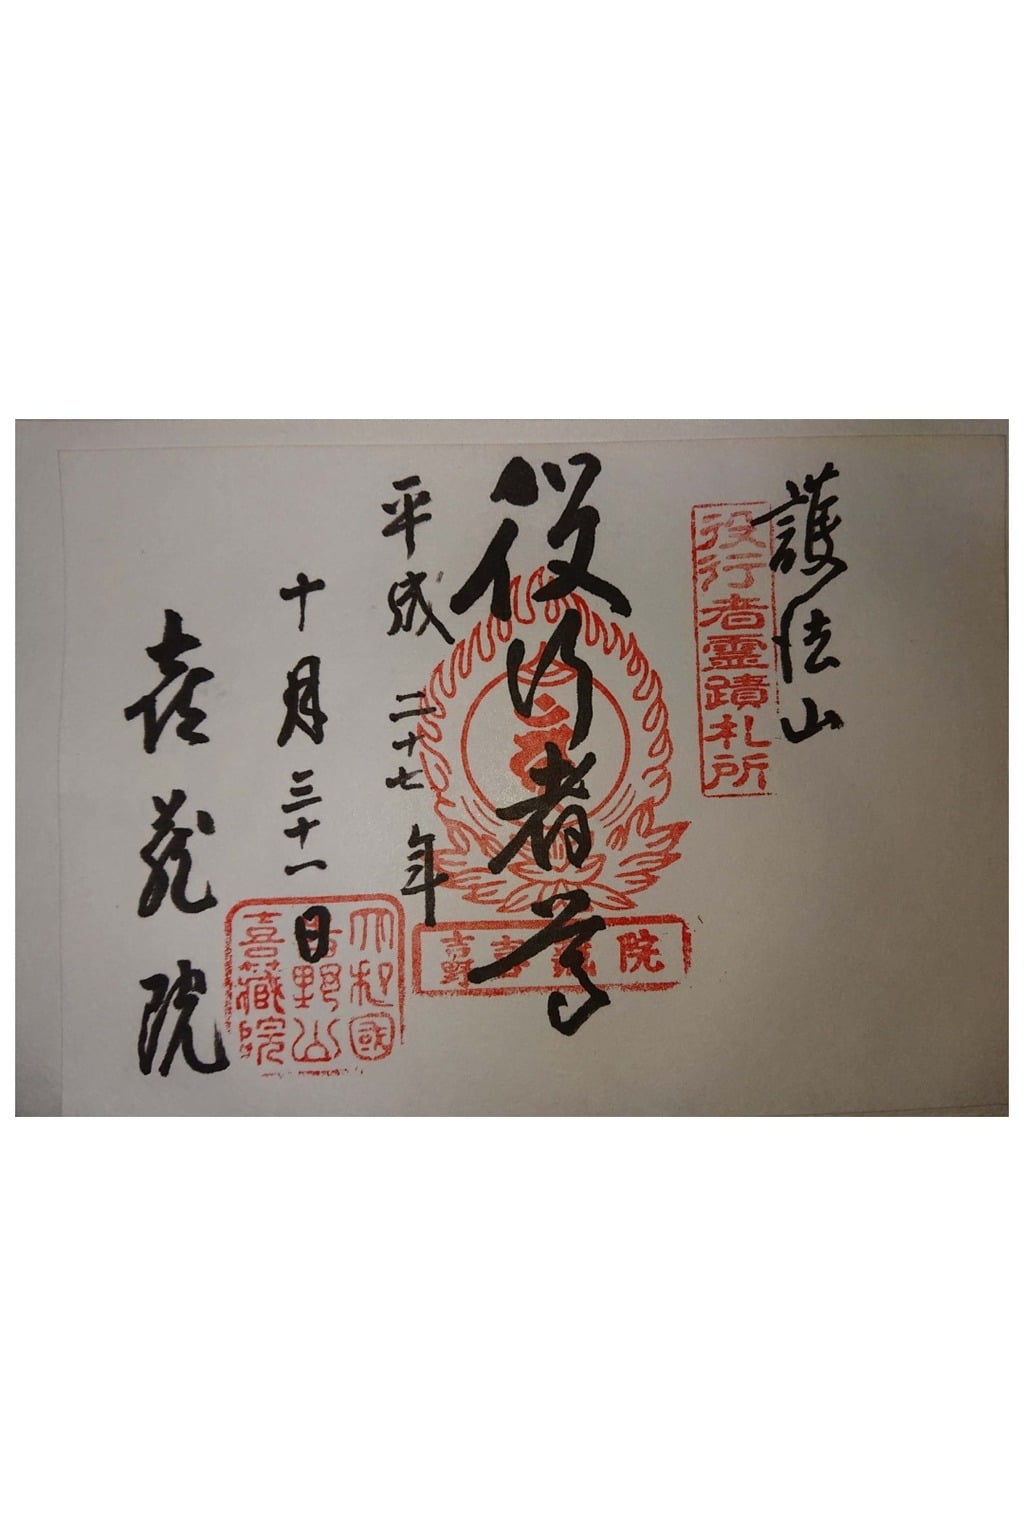 護法山
役行者霊蹟札所
役行者尊
吉野喜蔵院
平成二十七年
十月三十一日
大和國
吉野山
喜蔵院
喜蔵院